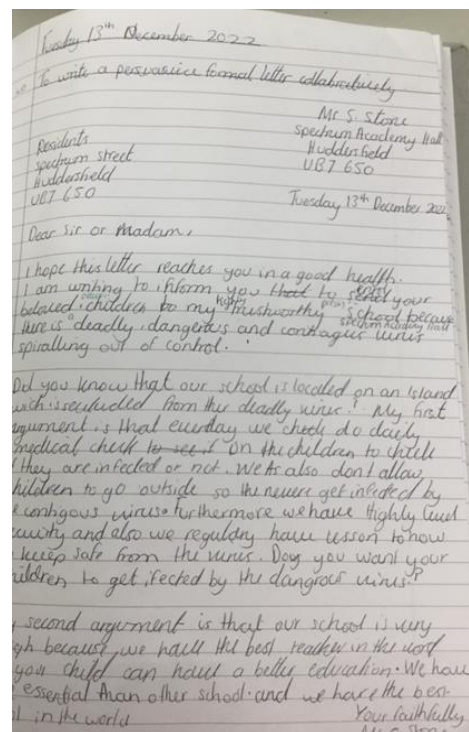 Tuesday 13th December 2022
To write a persuasive formal letter collaboratively
Mr S. Stone
Spectrum Academy Hall
Huddersfield
UB7 650
Residents
Spectrum Street
Huddersfield
UB7 650
Tuesday 13th December 2022
Dear Sir or Madam,
I hope this letter reaches you in a good health.
I am writing to inform you that to send your
beloved children to my highly trustworthy school because
Spectrum Academy Hall
there is a deadly, dangerous and contagious virus
spiralling out of control.
Did you know that our school is located on an island
wich is secluded from ther deadly virus? My first
argument is that everday we check do daily
medical check to see if on the children to check
if they are infected or not. We also dont allow
hildren to go outside so the never get infected by
contigous virus. furthermore we have Highly
and also we regulary have lesson to how
keep safe from the virus. Doy you want your
hildren to get ifected by the dangrous virus?
second argument is that our school is very
gh because we have the best teacher in the word
your child can have a education. We have
essential than other school. and we have the best
l in the world
Your faithfully